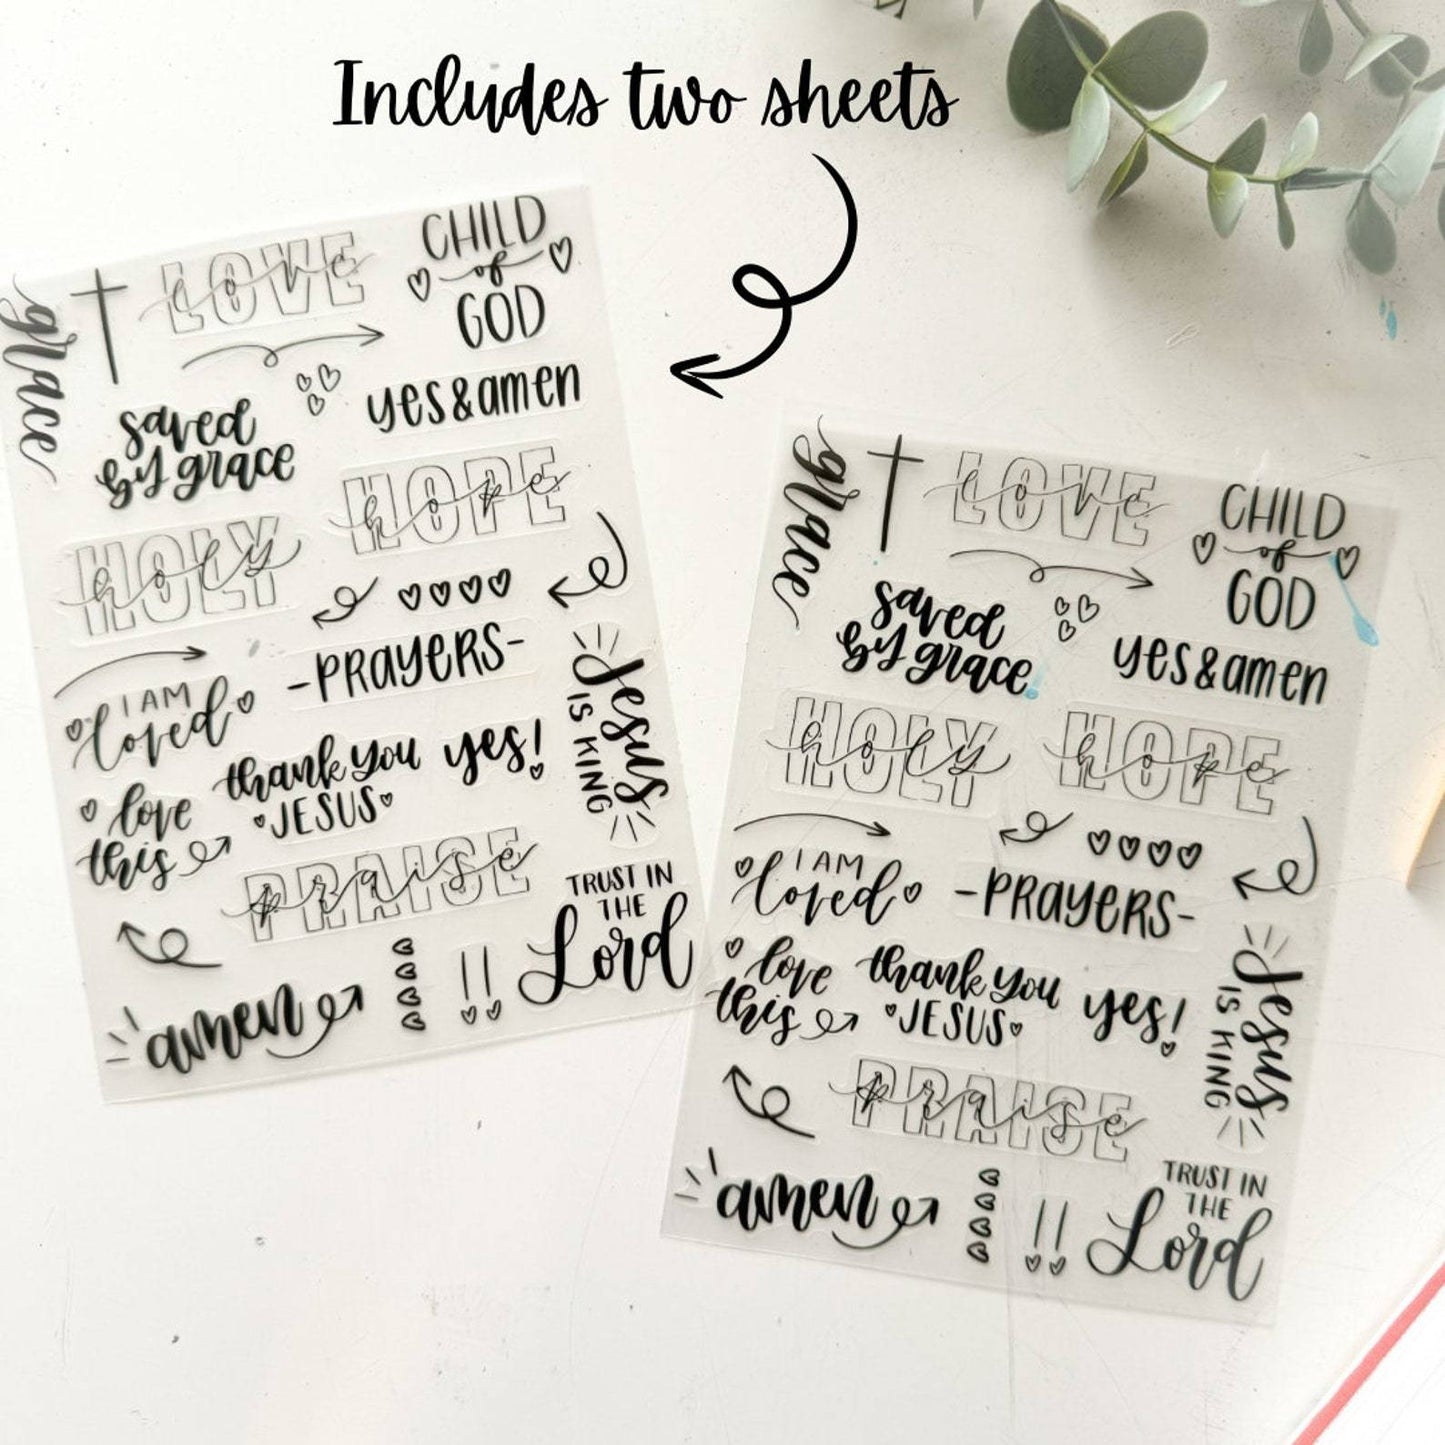 Includes two sheets
grace
LOVE
love
CHILD
of
GOD
saved
by grace
yes&amen
HOPE
hope
HOLY
holy
-PRAYERS-
I AM
loved
Jesus
IS KING
thank you
JESUS
yes!
love
this
PRAISE
praise
TRUST IN
THE
Lord
amen
grace
LOVE
love
CHILD
of
GOD
saved
by grace
yes&amen
HOLY
holy
HOPE
hope
I AM
loved
-PRAYERS-
love
this
thank you
JESUS
yes!
Jesus
IS KING
PRAISE
praise
TRUST IN
THE
Lord
amen